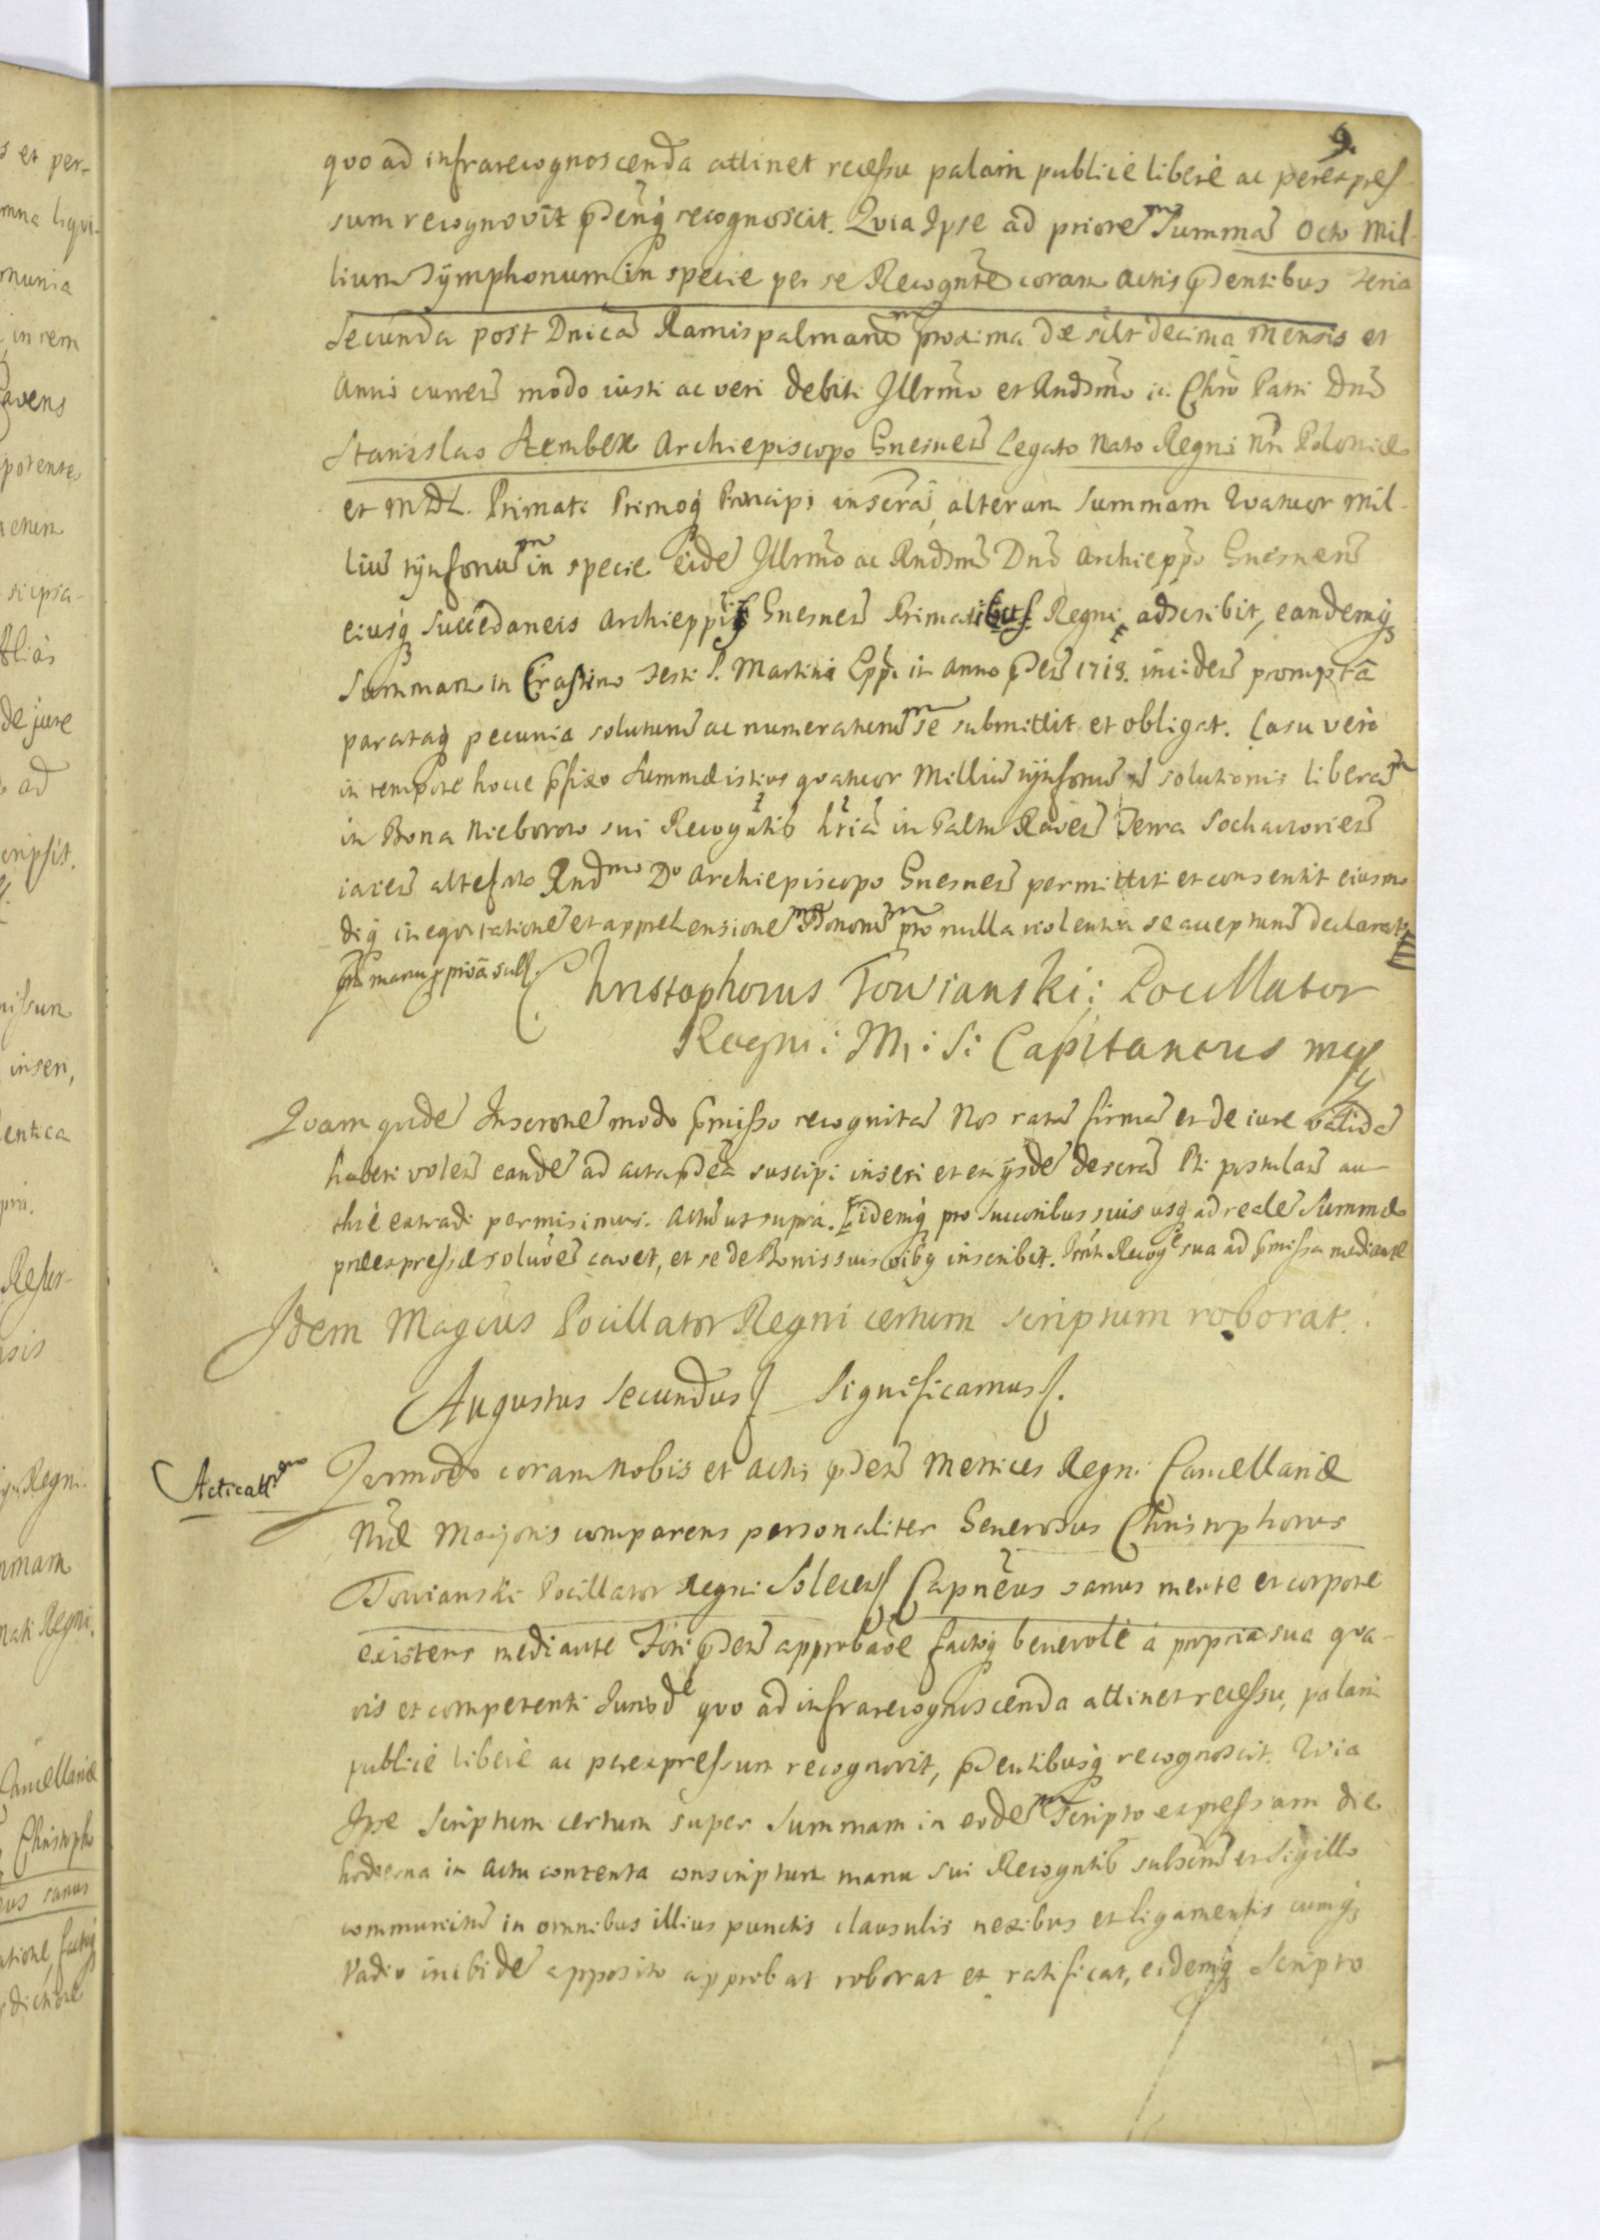 9.
quo ad infrarecognoscenda attinet recessu palam publice libere ac perexpres
sum recognovit pñtnq recognoscit. Quia Ipse ad priorem Summã Octo Mil-
lium Tÿmphonum in specie per se Recognñte coram Actis pñdentibus Feria
Secunda post Dnicã Ramispalmarũ proxima die scilt decima Mensis et
Anni currẽn modo iusti ac veri debiti Illrmo et Rndsmo in Chro Patri Dno
Stanislao Szembek Archiepiscopo Gnesnen Legato Nato Regni nri Poloniæ
et MDL. Primati Primoq Principi inscrã, alteram Summam Quatuor Mil-
liũ tÿnfonũm in specie eidẽ Illrmo ac Rndsmo Dno Archieppo Gnesnen
eiusq Succedaneis Archieppis Gnesnen Primatibus Regni adscribit, eandemq
Summam in Crastino Festi S. Martini Eppi in Anno pñden 1718. inciden promptã
parataq pecunia soluturũ ac numeraturũm se submittit et obligat. Casu vero
in tempore hocce pfixo Summæ istius quatuor Milliũ tÿnfonũ solutionis liberãm
in Bona Nieborow sui Recogntis hria in Paltu Raven Terra Sochaczovien
iacen altefato Rndmo Do Archiepiscopo Gnesnen permittit et consentit eiusmo
diq inequitationẽ et apprehensionẽm Bonorũm pro nulla violentia se accepturũ declarat
manu ppria subs. Christophorus Towianski: Pocillator
Regni: M: S: Capitaneus mp
Quam quidẽ Inscronẽ modo pmisso recognitã Nos ratã firmã et de iure validã
haberi volen eandẽ ad acta pñden suscipi inseri et ex ÿsdẽ descrã Pti postulan au-
thẽ extradi permisimus. Actũ ut supra. Eidemq pro Succoribus suis usq ad realẽ Summæ
præexpressæ soluoẽm cavet, et se de Bonis suis oibq inscribit. Pñti Recogẽ sua ad pmissa mediante
Idem Magcus Pocillator Regni certum scriptum roborat.
Augustus Secundus Significamus.
Acticatmo
Quomodo coram Nobis et Actis pñden Metrices Regni Cancellariæ
Nræ Majoris comparens personaliter Generosus Christophorus
Towianski Pocillator Regni Solecen Capneus sanus mente et corpore
existens mediante Fori pñden approbaõe factaq benevole à propria sua qva-
vis et competenti Jurisde quo ad infrarecognoscenda attinet recessu, palam
publice libere ac perexpressum recognovit, pñdentibusq recognoscit. Quia
Ipse scriptum certum super Summam in eodẽm Scripto expressam die
hodierna in Actu contenta conscriptum manu sui Recogntis subscriũ et Sigillo
communitũ in omnibus illius punctis clausulis nexibus et ligamentis cumq
Vadio inibidẽ apposito approbat roborat et ratificat, eidemq Scripto